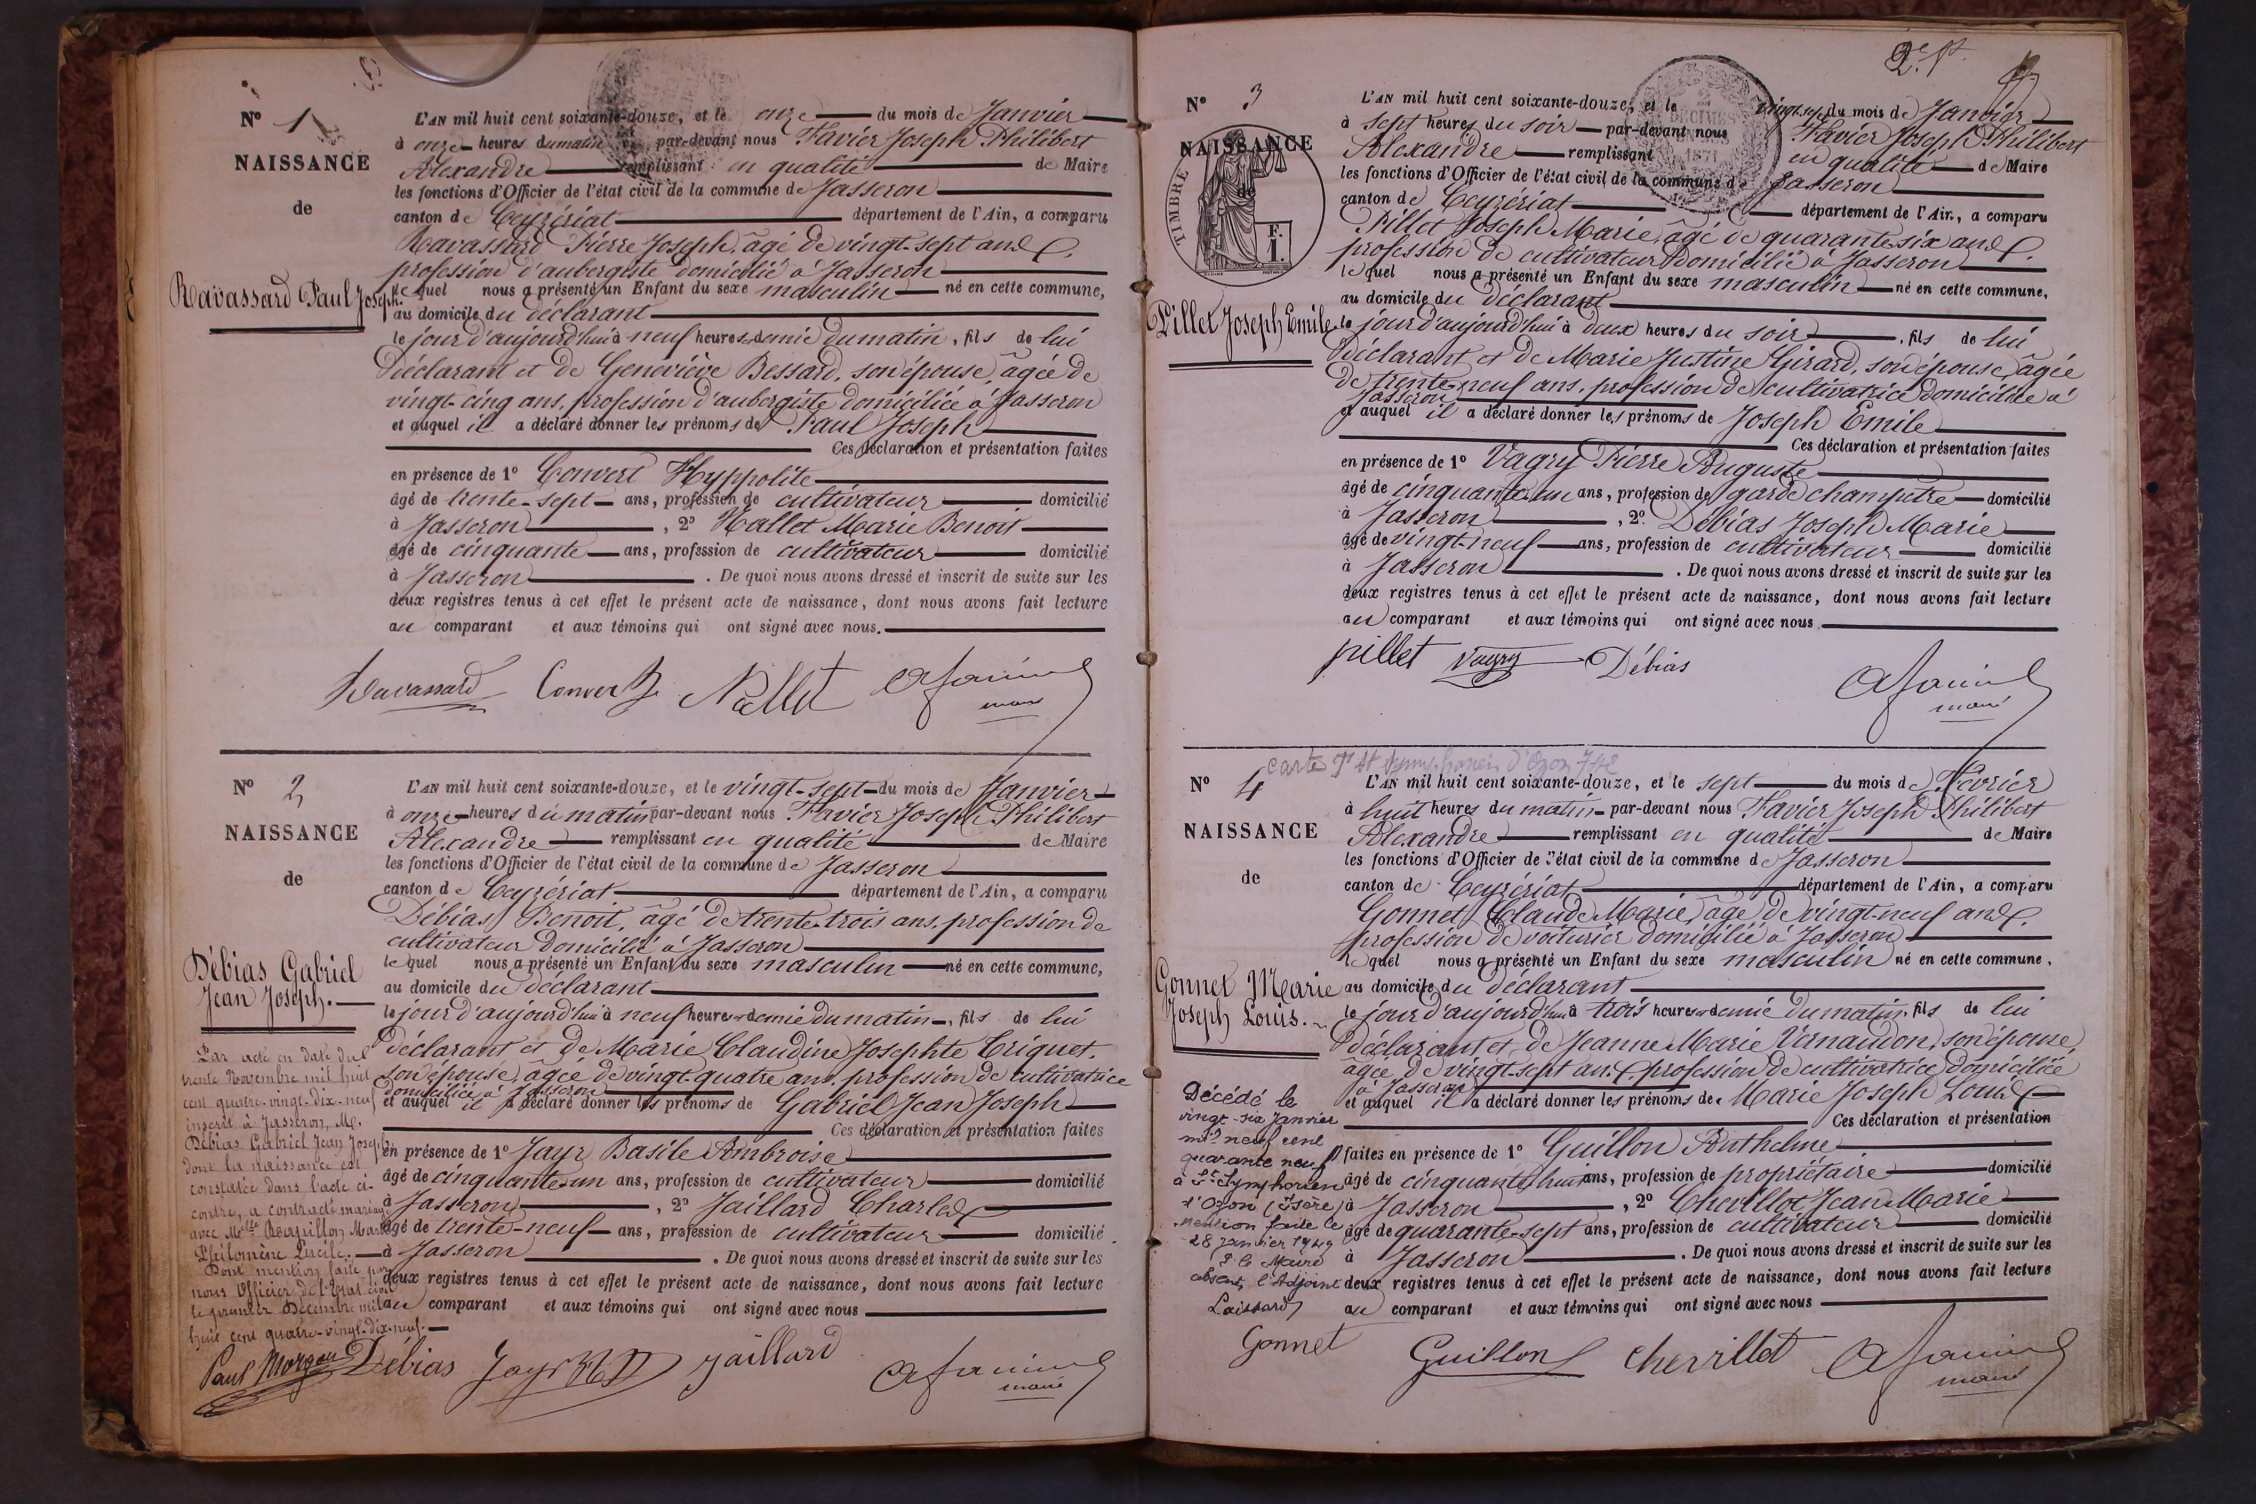 Nº 1
NAISSANCE
de
Ravassard Paul Joseph.
L'AN mil huit cent soixante-douze, et le onze du mois de Janvier
à onze heures du matin par-devant nous Favier Joseph Philibert
Alexandre remplissant en qualité de Maire
les fonctions d'Officier de l'état civil de la commune de Jasseron
canton de Ceyzériat département de l'Ain, a comparu
Ravassard Pierre Joseph, âgé de vingt-sept ans
profession d'aubergiste domicilié à Jasseron
lequel nous a présenté un Enfant du sexe masculin né en cette commune,
au domicile du déclarant
le jour d'aujourd'hui à neuf heures demie du matin, fils de lui
déclarant et de Geneviève Bessard, son épouse, âgée de
vingt-cinq ans, profession d'aubergiste domiciliée à Jasseron
et auquel il a déclaré donner les prénoms de Paul Joseph
Ces déclaration et présentation faites
en présence de 1º Convert Hyppolite
âgé de trente-sept ans, profession de cultivateur domicilié
à Jasseron, 2º Nallet Marie Benoit
âgé de cinquante ans, profession de cultivateur domicilié
à Jasseron. De quoi nous avons dressé et inscrit de suite sur les
deux registres tenus à cet effet le présent acte de naissance, dont nous avons fait lecture
au comparant et aux témoins qui ont signé avec nous.
Ravassard Convert Nallet
maire
Nº 2
NAISSANCE
de
Débias Gabriel
Jean Joseph.
L'AN mil huit cent soixante-douze, et le vingt-sept du mois de Janvier
à onze heures du matin par-devant nous Favier Joseph Philibert
Alexandre remplissant en qualité de Maire
les fonctions d'Officier de l'état civil de la commune de Jasseron
canton de Ceyzériat département de l'Ain, a comparu
Débias Benoit, âgé de trente-trois ans, profession de
cultivateur domicilié à Jasseron
lequel nous a présenté un Enfant du sexe masculin né en cette commune,
au domicile du déclarant
le jour d'aujourd'hui à neuf heures demie du matin, fils de lui
déclarant et de Marie Claudine Josephte Criquet,
son épouse, âgée de vingt-quatre ans, profession de cultivatrice
domiciliée à Jasseron
et auquel il a déclaré donner les prénoms de Gabriel Jean Joseph
Ces déclaration et présentation faites
en présence de 1º Jayr Basile Ambroise
âgé de cinquante-un ans, profession de cultivateur domicilié
à Jasseron, 2º Jaillard Charles
âgé de trente-neuf ans, profession de cultivateur domicilié
à Jasseron. De quoi nous avons dressé et inscrit de suite sur les
deux registres tenus à cet effet le présent acte de naissance, dont nous avons fait lecture
au comparant et aux témoins qui ont signé avec nous
Par acte en date du
trente Novembre mil huit
cent quatre-vingt-dix-neuf
inscrit à Jasseron, Mr.
Débias Gabriel Jean Joseph
dont la naissance est
constatée dans l'acte ci-
contre, a contracté mariage
avec Melle Marie
Philomène Lucile.
Dont mention faite par
nous Officier de l'Etat civil
le premier Décembre mil
huit cent quatre-vingt-dix-neuf.
Paul Morgon Débias Jayr Jaillard
maire
2e ft
Nº 3
NAISSANCE
de
TIMBRE
F.
1.
Pillet Joseph Emile
L'AN mil huit cent soixante-douze, et le vingt-sept du mois de Janvier
à sept heures du soir par-devant nous Favier Joseph Philibert
Alexandre remplissant en qualité de Maire
les fonctions d'Officier de l'état civil de la commune de Jasseron
canton de Ceyzériat département de l'Ain, a comparu
Pillet Joseph Marie, âgé de quarante-six ans
profession de cultivateur domicilié à Jasseron
lequel nous a présenté un Enfant du sexe masculin né en cette commune,
au domicile du déclarant
le jour d'aujourd'hui à deux heures du soir, fils de lui
déclarant et de Marie Justine Girard, son épouse, âgée
de trente-neuf ans, profession de cultivatrice domiciliée à
Jasseron
et auquel il a déclaré donner les prénoms de Joseph Emile
Ces déclaration et présentation faites
en présence de 1º Vagry Pierre Auguste
âgé de cinquante-un ans, profession de garde champêtre domicilié
à Jasseron, 2º Débias Joseph Marie
âgé de vingt-neuf ans, profession de cultivateur domicilié
à Jasseron. De quoi nous avons dressé et inscrit de suite sur les
deux registres tenus à cet effet le présent acte de naissance, dont nous avons fait lecture
au comparant et aux témoins qui ont signé avec nous
pillet Vagry Débias
maire
carte St Symphorien d'Ozon
Nº 4
NAISSANCE
de
Gonnet Marie
Joseph Louis.
L'AN mil huit cent soixante-douze, et le sept du mois de Février
à huit heures du matin par-devant nous Favier Joseph Philibert
Alexandre remplissant en qualité de Maire
les fonctions d'Officier de l'état civil de la commune de Jasseron
canton de Ceyzériat département de l'Ain, a comparu
Gonnet Claude Marie, âgé de vingt-neuf ans
profession de voiturier domicilié à Jasseron
lequel nous a présenté un Enfant du sexe masculin né en cette commune,
au domicile du déclarant
le jour d'aujourd'hui à trois heures demie du matin, fils de lui
déclarant et de Jeanne Marie Vernaudon, son épouse,
âgée de vingt-sept ans, profession de cultivatrice domiciliée
à Jasseron
et auquel il a déclaré donner les prénoms de Marie Joseph Louis
Ces déclaration et présentation
faites en présence de 1º Guillon Anthelme
âgé de cinquante-huit ans, profession de propriétaire domicilié
à Jasseron, 2º Chevillot Jean Marie
âgé de quarante-sept ans, profession de cultivateur domicilié
à Jasseron. De quoi nous avons dressé et inscrit de suite sur les
deux registres tenus à cet effet le présent acte de naissance, dont nous avons fait lecture
au comparant et aux témoins qui ont signé avec nous
Décédé le
vingt-six Janvier
mil neuf cent
quarante neuf
à St Symphorien
d'Ozon (Isère)
mention faite le
28 janvier 1949
P. le Maire
absent, l'Adjoint
Gonnet Guillon Chevillot
maire